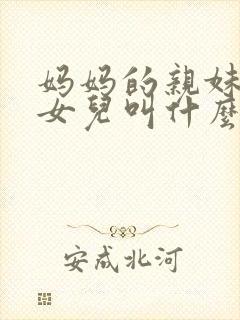 妈妈的親妹
女兒叫什麼
安成北河